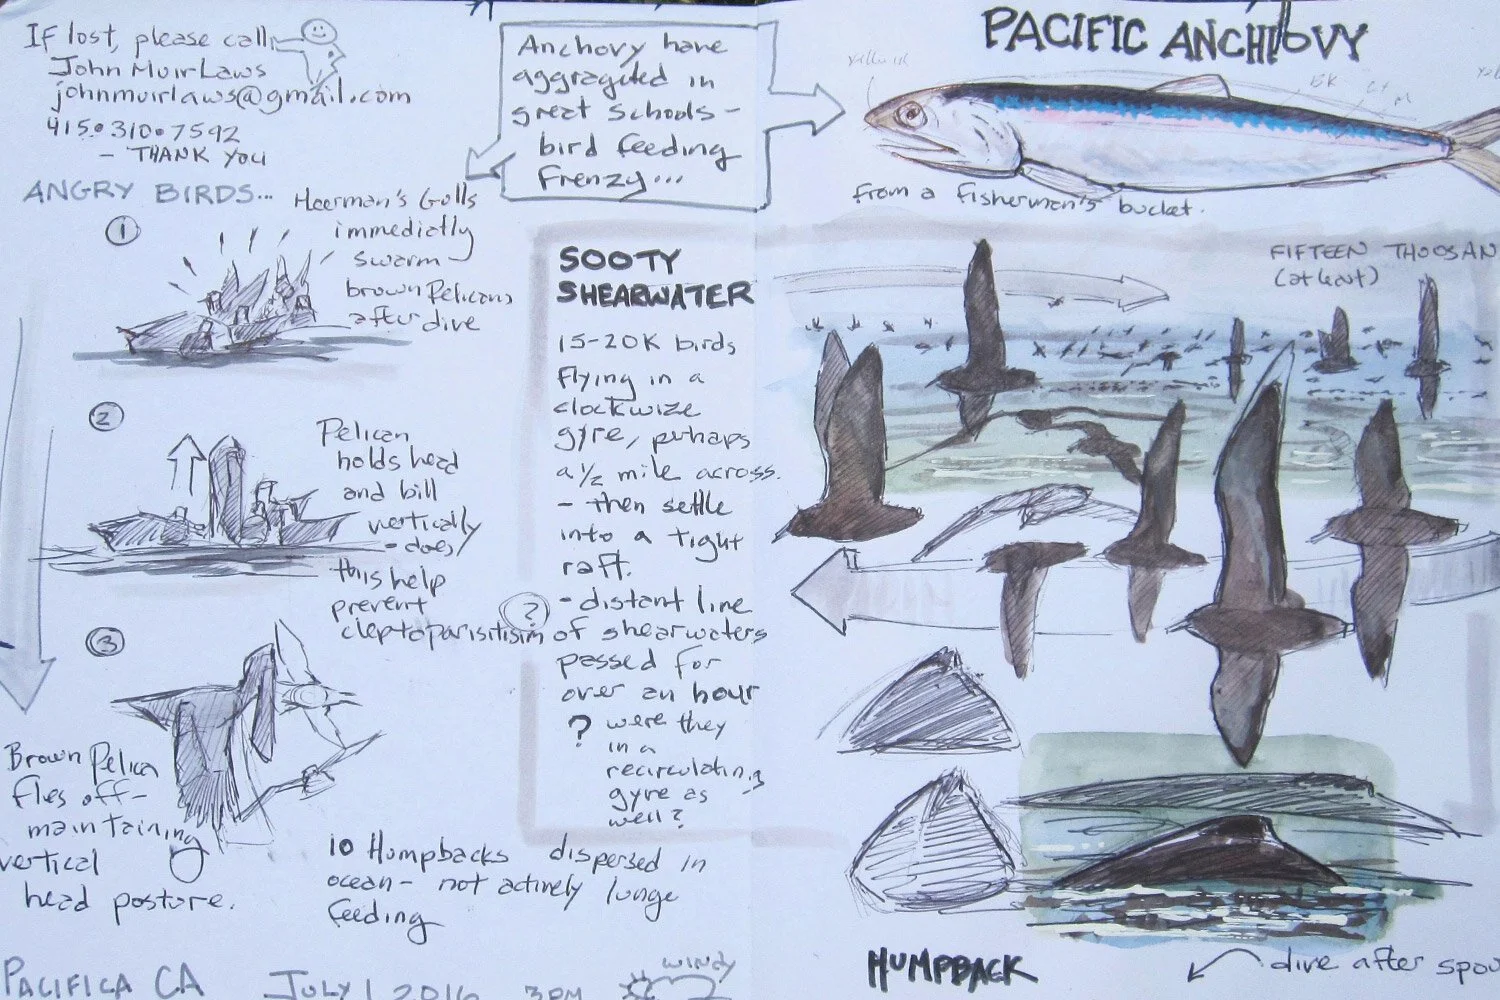 If lost, please call
John Muir Laws
johnmuirlaws@gmail.com
415•310•7592
- THANK YOU
ANGRY BIRDS...
①
Heerman's Gulls
immediatly
swarm
brown Pelicans
after dive
②
Pelican
holds head
and bill
vertically
- does
this help
prevent
cleptoparisitisim
?
③
Brown Pelica
flies off-
maintaining
vertical
head posture.
10 Humpbacks dispersed in
ocean - not actively lunge
feeding
PACIFICA CA JULY 1 2016 3PM WINDY
Anchovy have
aggragated in
great schools -
bird feeding
frenzy...
SOOTY
SHEARWATER
15-20K birds
flying in a
clockwize
gyre, purhaps
a ½ mile across.
- then settle
into a tight
raft.
- distant line
of shearwaters
passed for
over an hour
? were they
in a
recirculating
gyre as
well?
PACIFIC ANCHOVY
BK
from a fisherman's bucket.
FIFTEEN THOUSAN
(at least)
HUMPBACK
dive after spou